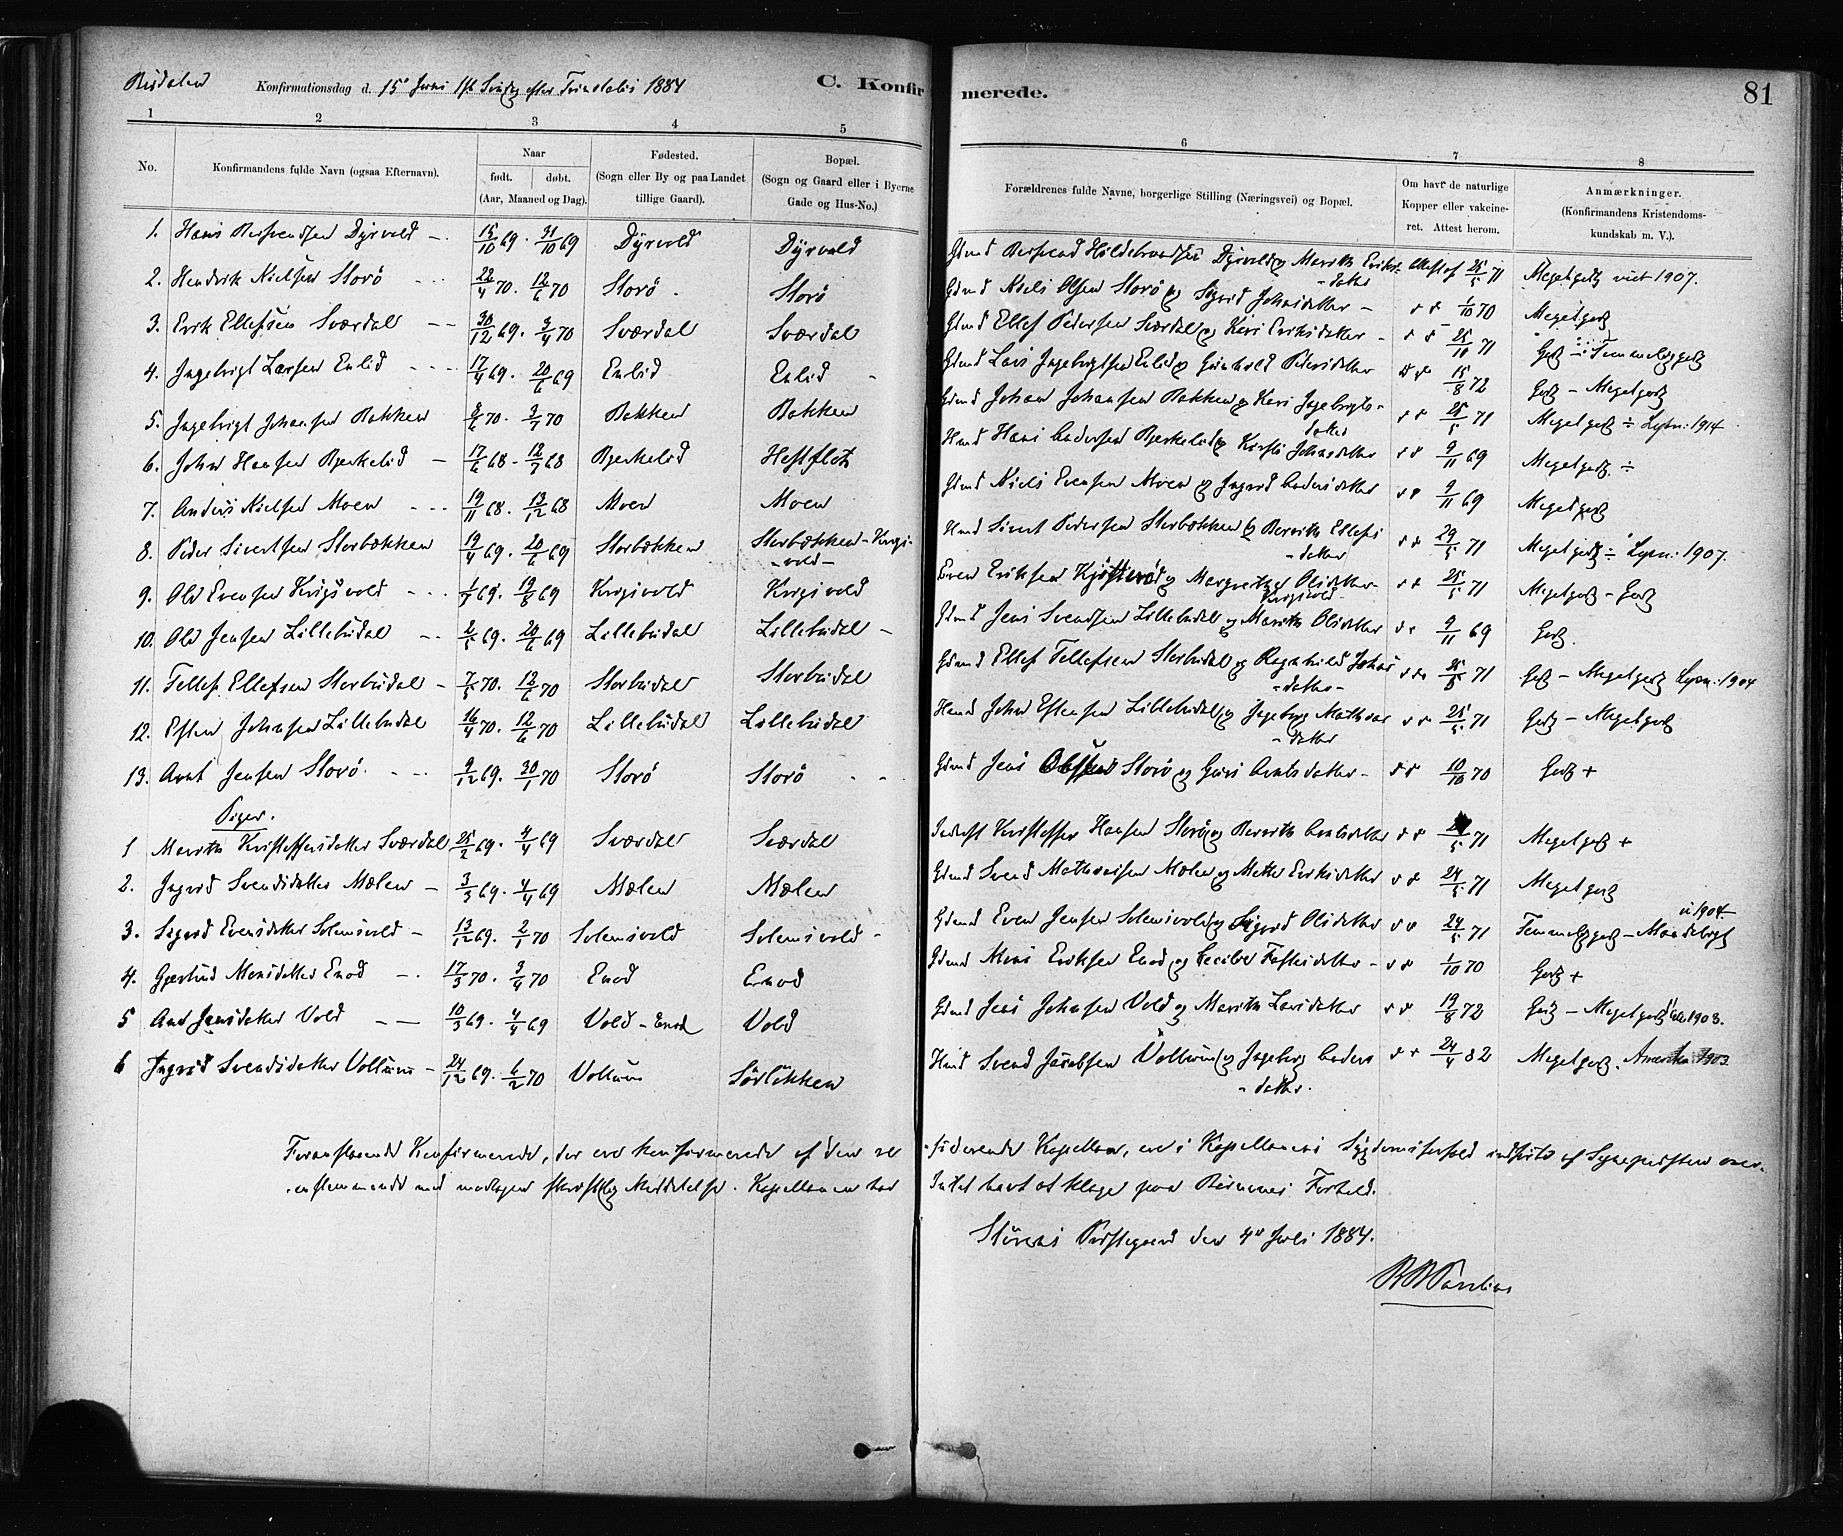 Budalen Konfirmationsdag d. 15de Juni 1ste Søndag efter Trinitatis 1884 C. Konfirmerede. 81
1 2 3 4 5 6 7 8
No. Konfirmandens fulde Navn (ogsaa Efternavn). Naar født. døbt. (Aar, Maaned og Dag). Fødested. (Sogn eller By og paa Landet tillige Gaard). Bopæl. (Sogn og Gaard eller i Byerne Gade og Hus-No.) Forældrenes fulde Navne, borgerlige Stilling (Næringsvei) og Bopæl. Om havt de naturlige Kopper eller vakcineret. Attest herom. Anmærkninger. (Konfirmandens Kristendomskundskab m. V.).
1. Hans Bersvendsen Dyrvold 15/10 69. 31/10 69 Dyrvold Dyrvold Gmd Bersvend Hildebrandsen Dyrvold og Marith Eriksdatter Attest af 25/5 71 Meget godt viet 1907.
2. Hendrik Nielsen Storø 22/4 70. 12/6 70 Storø Storø Gmd Niels Olsen Storø og Sigrid Johnsdatter 1/10 70 Meget godt
3. Erik Ellefsen Sværdal 30/12 69. 3/4 70 Sværdal Sværdal Gmd Ellef Pedersen Sværdal og Kari Eriksdatter 25/10 71 Godt - Temmelig godt
4. Ingebrigt Larsen Enlid 17/4 69. 20/6 69 Enlid Enlid Gmd Lars Ingebrigtsen Enlid og Gunhild Pedersdatter 15/8 72 Godt - Meget godt
5. Ingebrigt Johansen Bakken 8/6 70. 3/7 70 Bakken Bakken Gmd Johan Johansen Bakken og Kari Ingebrigtsdatter 25/5 71 Meget godt ÷ Lysn: 1914
6. John Hansen Bjerkelid 17/6 68 - 12/7 68 Bjerkelid Hestflot Hmd Hans Andersen Bjerkelid og Kirsti Johnsdatter 9/11 69 Meget godt ÷
7. Anders Nielsen Moen 19/11 68. 13/12 68 Moen Moen Gmd Niels Evensen Moen og Ingrid Andersdatter 9/11 69 Meget godt
8. Peder Sivertsen Storbækken 19/4 69. 20/6 69 Storbækken Storbækken - Krigsvold Hmd Sivert Pedersen Storbækken og Berith Ellefsdatter 29/5 71 Meget godt ÷ Lysn: 1907.
9. Ole Evensen Krigsvold 1/7 69. 19/8 69 Krigsvold Krigsvold Even Eriksen og Margrethe Olsdatter Krigsvold 25/5 71 Meget godt - Godt
10. Ole Jensen Lillebudal 2/5 69. 20/6 69 Lillebudal Lillebudal Gmd Jens Svendsen Lillebudal og Marith Olsdatter 9/11 69 Godt.
11. Tellef Ellefsen Storbudal 7/5 70. 12/6 70 Storbudal Storbudal Gmd Ellef Tellefsen Storbudal og Ragnhild Johnsdatter 25/5 71 Godt - Meget godt Lysn: 1904
12. Esten Johnsen Lillebudal 16/4 70. 12/6 70 Lillebudal Lillebudal Hmd John Estensen Lillebudal og Ingeborg Mathsdatter 25/5 71 Godt - Meget godt
13. Arnt Jensen Storø 9/12 69. 30/1 70 Storø Storø Gmd Jens Storø og Guri Arntsdatter 10/10 70 Godt +
Piger.
1 Marith Kristoffersdatter Sværdal 25/2 69. 4/4 69 Sværdal Sværdal Inderst Kristoffer Hansen Storø og Berith Arntsdatter 24/5 71 Meget godt +
2. Ingrid Svendsdatter Mælen 3/3 69. 4/4 69 Mælen Mælen Gmd Svend Mathiasen Mælen og Mette Eriksdatter 24/5 71 Meget godt
3. Sigrid Evensdatter Solemsvold 13/12 69. 2/1 70 Solemsvold Solemsvold Gmd Even Jensen Solemsvold og Sigrid Olsdatter 24/5 71 Temmelig godt - Maadeligt v. 1904
4. Gjertrud Monsdatter Enod 17/3 70. 3/4 70 Enod Enod Gmd Mons Eriksen Enod og Cecilie 1/10 70 Godt +
5 Ane Jensdatter Vold 10/3 69. 4/4 69 Vold - Enod Vold Gmd Jens Johnsen Vold og Marith Larsdatter 19/8 72 Godt - Meget godt 1903.
6 Ingrid Svendsdatter Vollum 24/12 69. 6/2 70 Vollum Sørløkken Hmd Svend Jacobsen Vollum og Ingeborg Andersdatter. 24/4 82 Meget godt. Amerika 1903
Foranstaaende Konfirmerede, der ere konfirmerede af den residerende Kapellan, ere i Kapellanens Sygdomsforfald indførte af Sognepresten overensstemmende med modtagen skriftlig Meddelelse. Kapellanen har Intet havt at klage paa Børnenes Forhold.
Størens Prestegaard den 4de Juli 1884.